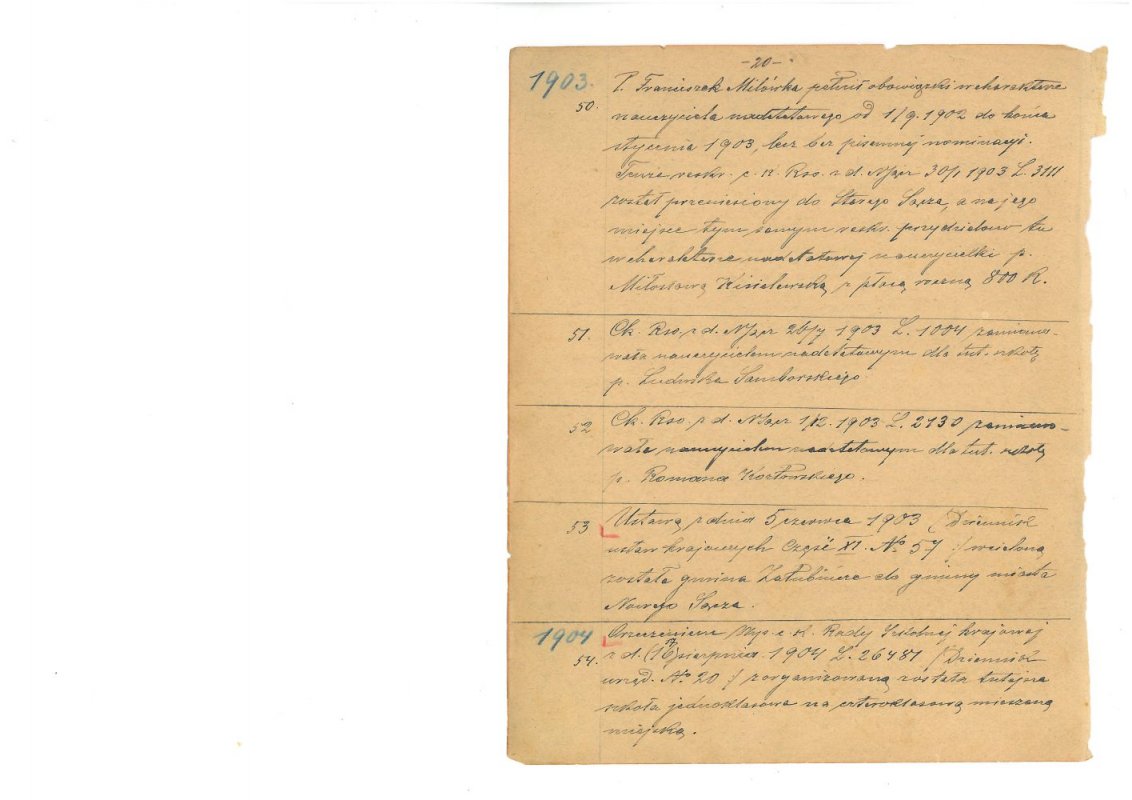 -20-
1903.
50. P. Franciszek Milówka pełnił obowiązki w charakterze
nauczyciela nadetatowego od 1/9.1902 do końca
stycznia 1903, lecz bez pisemnej nominacji.
Tenże reskr. c. k. Rso. z d. N/Sącz 30/1 1903 L. 3111
został przeniesiony do Starego Sącza, a na jego
miejsce tym samym reskr. przydzielono tu
w charakterze nadetatowej nauczycielki p.
Miłosławę Kisielewską z płacą roczną 800 K.
51. Ck. Rso. z d. N/Sącz 26/7 1903 L. 1004 zamiano-
wała nauczycielem nadetatowym dla tut. szkoły
p. Ludwika Samborskiego
52 Ck. Rso. z d. N/Sącz 1/12. 1903 L. 2130 zamiano-
wała nauczycielem nadetatowym dla tut. szkoły
p. Romana Kozłowskiego.
53 Ustawą z dnia 5 czerwca 1903 /Dziennik
ustaw krajowych Część XI. No 57 :/ wcieloną
została gmina Załubińcze do gminy miasta
Nowego Sącza.
1904 Orzeczeniem Wys. c. k. Rady Szkolnej krajowej
54. z d. (16) sierpnia 1904 L. 26481 /Dziennik
urzęd. No 20 :/ zorganizowaną została tutejsza
szkoła jednoklasowa na czteroklasową mieszaną
miejską.